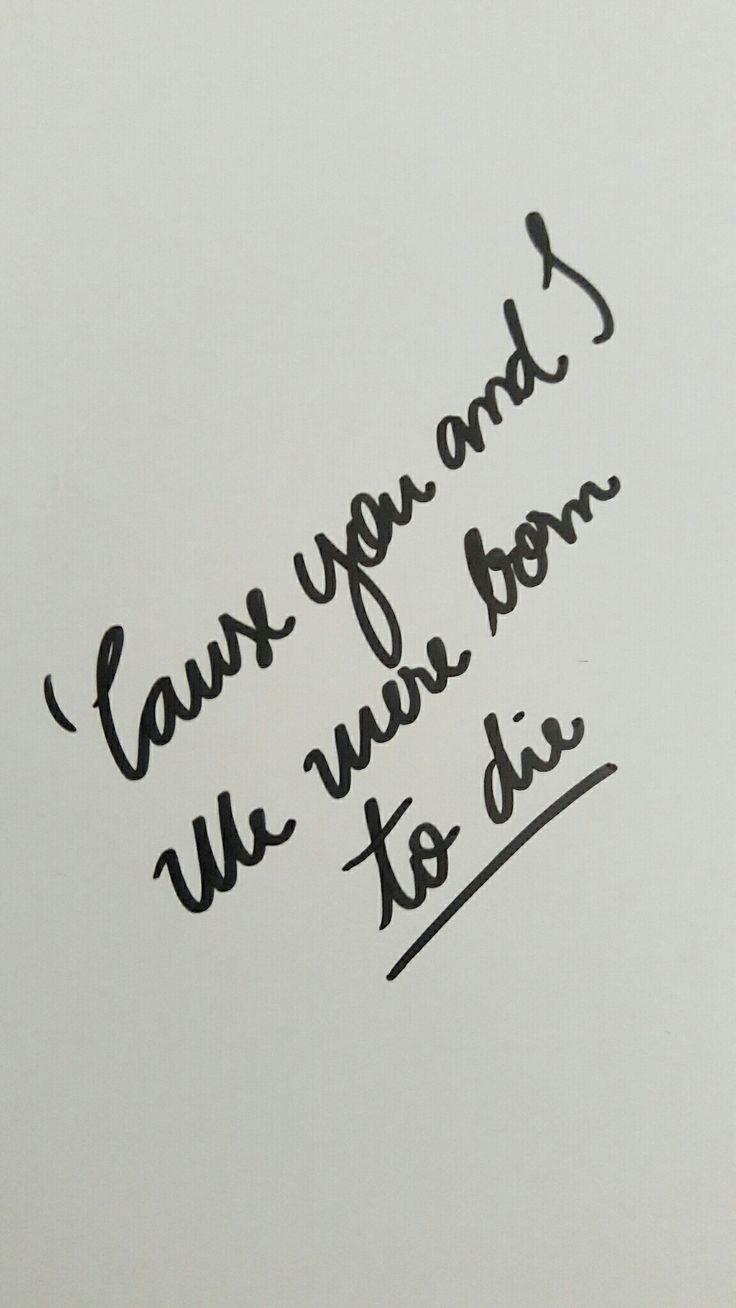 'Cause you and I
We were born
to die